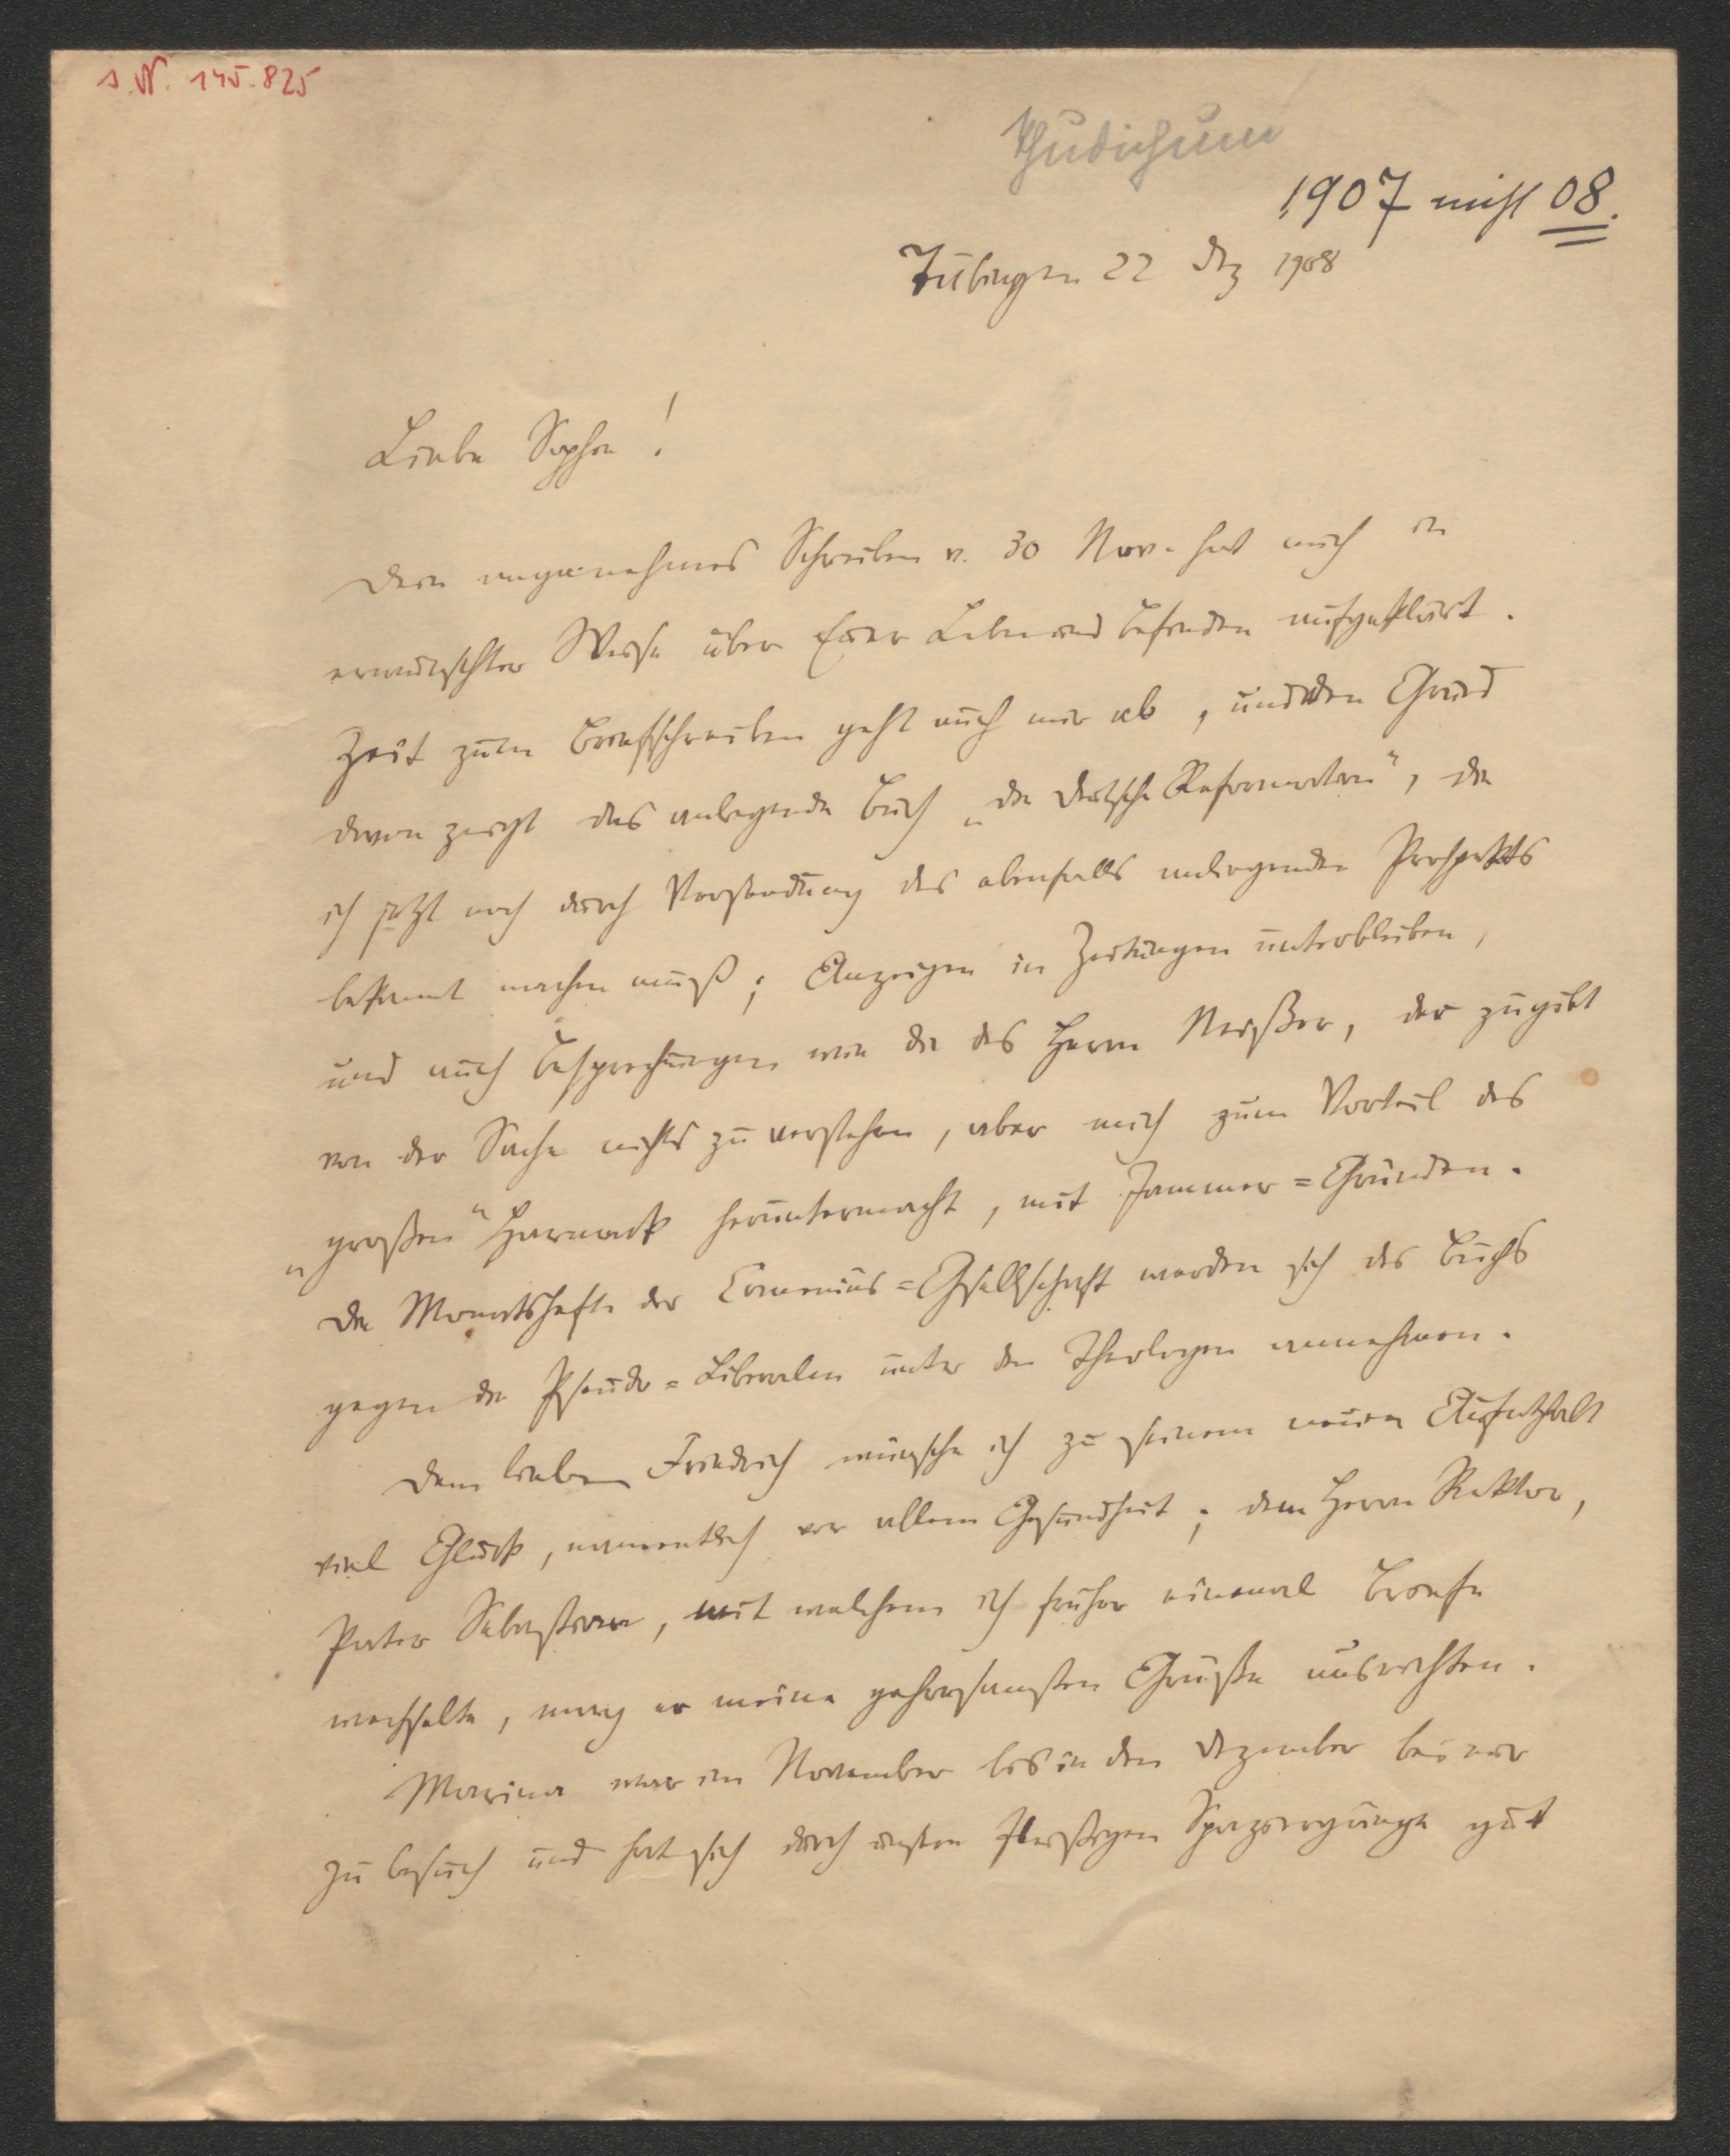 I.N. 145.825
Thudichum
1907 nicht 08.
Tübingen 22 Dez 1908
Liebe Sophie!
Dein angenehmes Schreiben v. 30 Nov. hat mich in
erwünschter Weise über Euer Leben und Befinden aufgeklärt.
Zeit zum Briefschreiben geht auch mir ab, und den Grund
davon zeigt das anliegende Buch „die deutsche Reformation", die
ich jetzt noch durch Versendung des ebenfalls anliegenden Prospekts
bekannt machen muß; Anzeigen in Zeitungen unterbleiben,
und auch Besprechungen wie die des Herrn Meißner, der zugibt
von der Sache nichts zu verstehen, aber mich zum Vorteil des
„großen" Harnack heruntermacht, mit Jammer=Gründen.
Die Monatshefte der Comenius=Gesellschaft werden sich des Buchs
gegen die Pseudo=Liberalen unter den Theologen annehmen.
Dem lieben Friedrich wünsche ich zu seinem neuen Aufenthalt
viel Glück, namentlich vor allem Gesundheit; dem Herrn Rektor,
Pater Sebastian, mit welchem ich früher einmal Briefe
wechselte, mag er meine gehorsamsten Grüße ausrichten.
war im November bis in den Dezember bei mir
zu Besuch und hat sich durch unsere fleißigen Spaziergänge gut